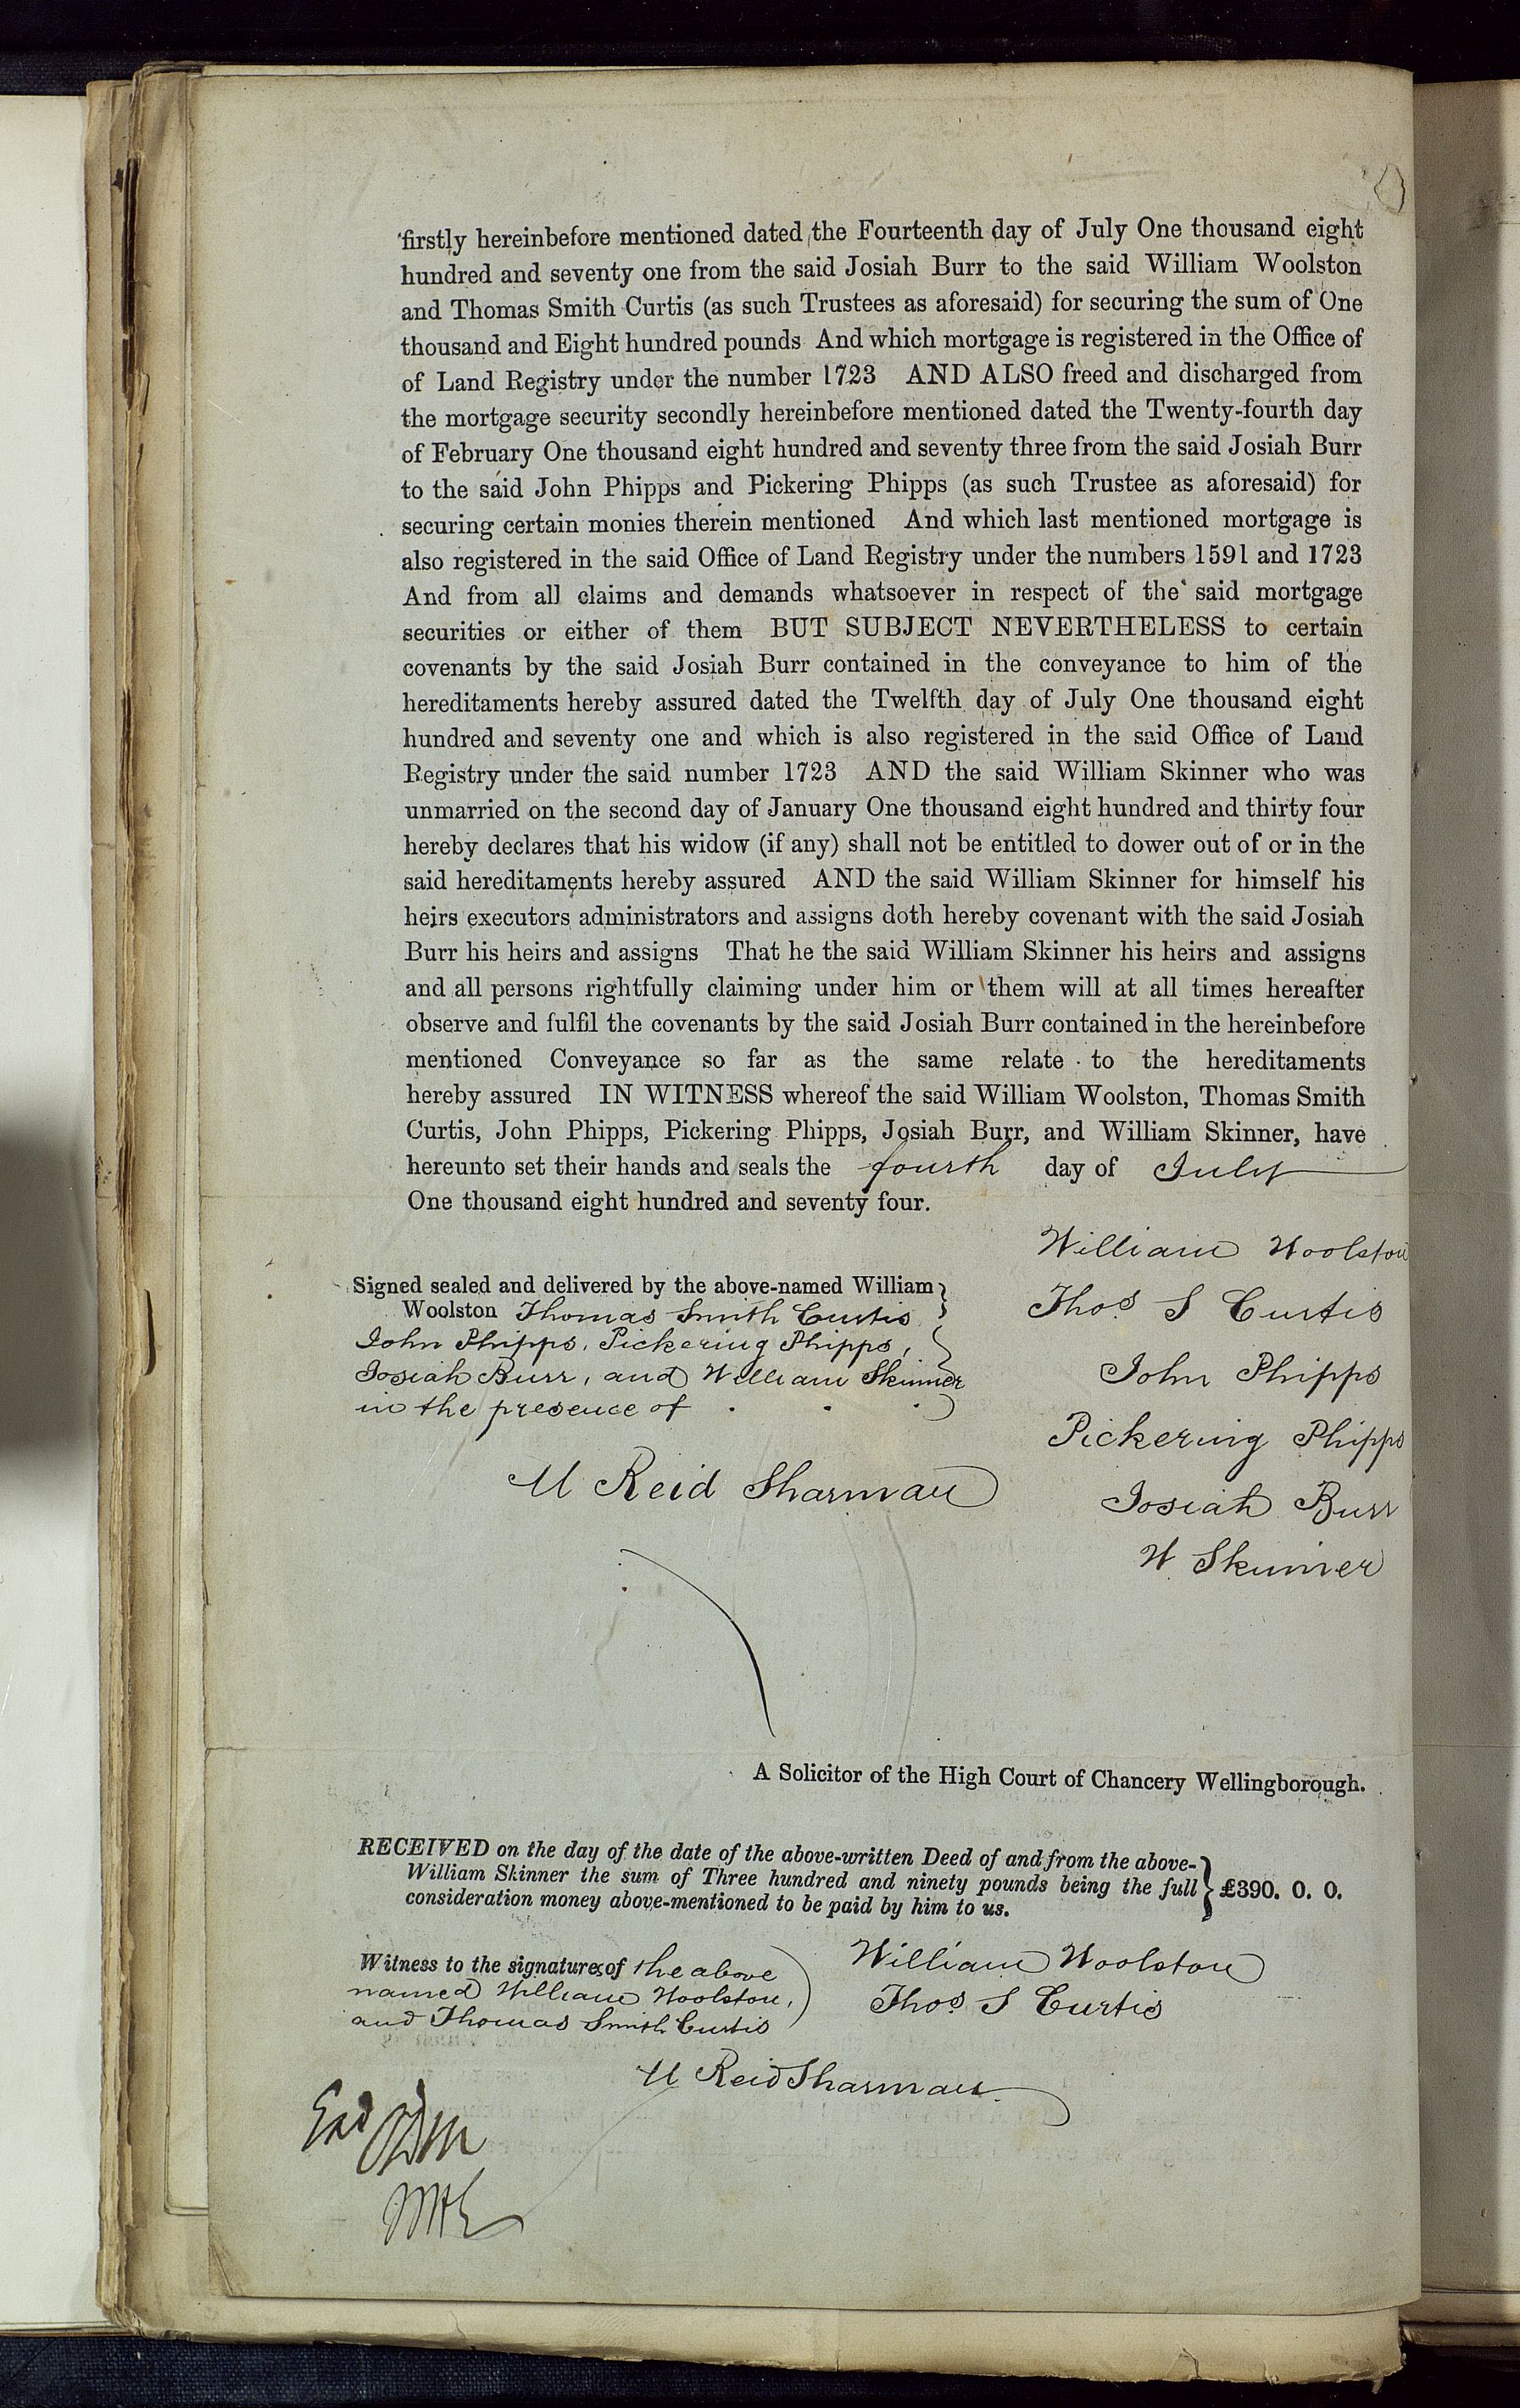 firstly hereinbefore mentioned dated the Fourteenth day of July One thousand eight
hundred and seventy one from the said Josiah Burr to the said William Woolston
and Thomas Smith Curtis (as such Trustees as aforesaid) for securing the sum of One
thousand and Eight hundred pounds And which mortgage is registered in the Office of
of Land Registry under the number 1723 AND ALSO freed and discharged from
the mortgage security secondly hereinbefore mentioned dated the Twenty-fourth day
of February One thousand eight hundred and seventy three from the said Josiah Burr
to the said John Phipps and Pickering Phipps (as such Trustee as aforesaid) for
securing certain monies therein mentioned And which last mentioned mortgage is
also registered in the said Office of Land Registry under the numbers 1591 and 1723
And from all claims and demands whatsoever in respect of the said mortgage
securities or either of them BUT SUBJECT NEVERTHELESS to certain
covenants by the said Josiah Burr contained in the conveyance to him of the
hereditaments hereby assured dated the Twelfth day of July One thousand eight
hundred and seventy one and which is also registered in the said Office of Land
Registry under the said number 1723 AND the said William Skinner who was
unmarried on the second day of January One thousand eight hundred and thirty four
hereby declares that his widow (if any) shall not be entitled to dower out of or in the
said hereditaments hereby assured AND the said William Skinner for himself his
heirs executors administrators and assigns doth hereby covenant with the said Josiah
Burr his heirs and assigns That he the said William Skinner his heirs and assigns
and all persons rightfully claiming under him or them will at all times hereafter
observe and fulfil the covenants by the said Josiah Burr contained in the hereinbefore
mentioned Conveyance so far as the same relate to the hereditaments
hereby assured IN WITNESS whereof the said William Woolston, Thomas Smith
Curtis, John Phipps, Pickering Phipps, Josiah Burr, and William Skinner, have
hereunto set their hands and seals the fourth day of July
One thousand eight hundred and seventy four.
William Woolston
Signed sealed and delivered by the above-named William
Woolston Thomas Smith Curtis
John Phipps, Pickering Phipps,
Josiah Burr, and William Skinner
in the presence of
Thos. S Curtis
John Phipps
Pickering Phipps
Josiah Burr
W Skinner
M Reid Sharman
A Solicitor of the High Court of Chancery Wellingborough.
RECEIVED on the day of the date of the above-written Deed of and from the above-
William Skinner the sum of Three hundred and ninety pounds being the full
consideration money above-mentioned to be paid by him to us.
£390. 0. 0.
Witness to the signatures of the above
named William Woolston,
and Thomas Smith Curtis
William Woolston
Thos. S Curtis
M Reid Sharman